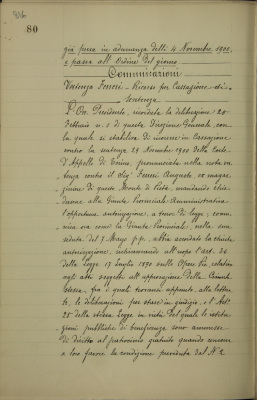 80
già presa in adunanza delli 4 Novembre 1900,
e passa all'Ordine del giorno
Comunicazioni
Vertenza Ferreri - Ricorso per Cassazione di
Sentenza
L'On. Presidente, ricordata la deliberazione 20
Febbraio n. 1 di questa Direzione Generale con
la quale si stabiliva di ricorrere in Cassazione
contro la sentenza 29 Novembre 1900 della Corte
d'Appello di Torino pronunciata nella nota ver
tenza contro il Sig. Ferreri Augusto, ex magaz
ziniere di questo Monte di Pietà, mandando chie
dersene alla Giunta Provinciale Amministrativa
l'opportuna autorizzazione, a tenore di legge, comu
nica ora come la Giunta Provinciale, nella sua
seduta del 7 Marzo p.p. abbia accordata la chiesta
autorizzazione, richiamando all'uopo l'art. 36
della Legge 17 Luglio 1890 sulle Opere Pie, relativo
agli atti soggetti all'approvazione della Giunta
stessa, fra i quali trovansi appunto, alla lettera
e, le deliberazioni per stare in giudizio, e l'Art.
25 della stessa Legge in virtù del quale le istitu
zioni pubbliche di beneficenza sono ammesse
di diritto al patrocinio gratuito quando concorra
a loro favore la condizione preveduta dal N.° 2